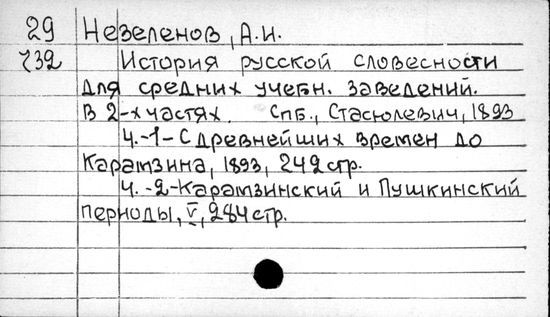 29 Незеленов, А.И.
732 История русской словесности
для средних учебн. заведений.
В 2-х частях. Спб., Стасюлевич, 1893
Ч.-1-С древнейших времен до
Карамзина, 1893, 242 стр.
Ч.-2-Карамзинский и Пушкинский
периоды, V, 284 стр.